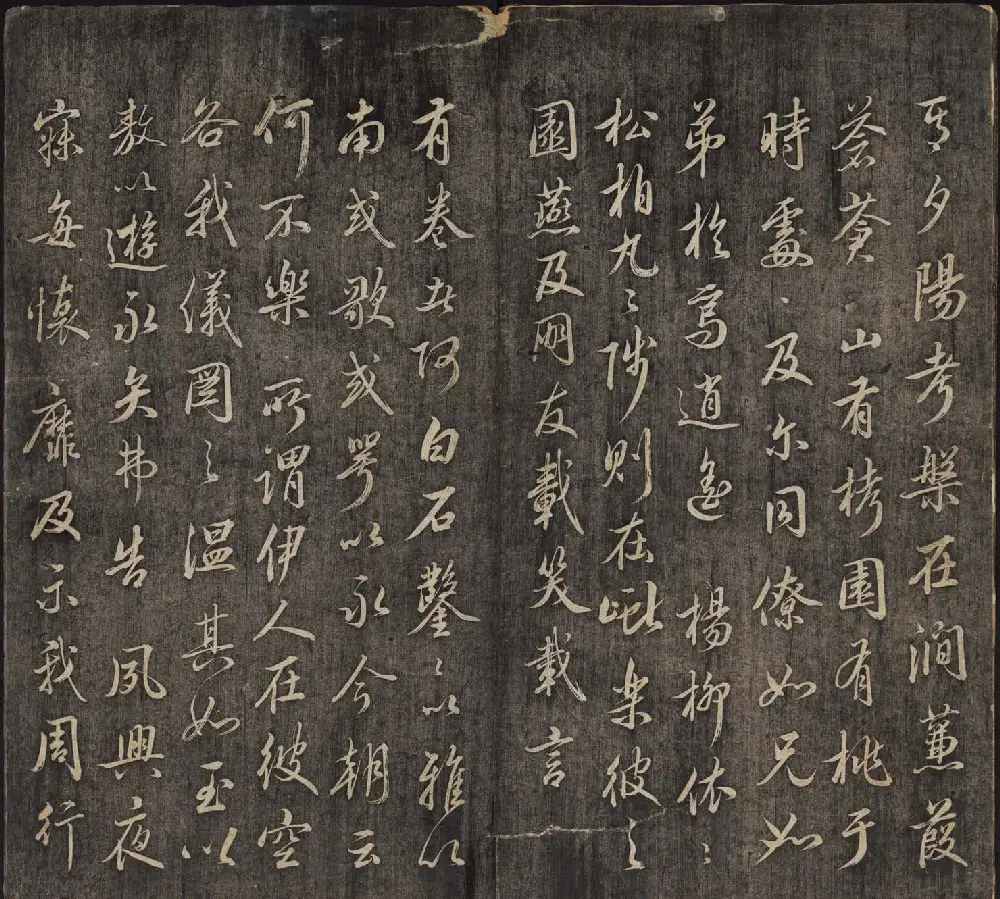 其夕陽考槃在澗蒹葭
蒼蒼山有栲園有桃于
時處〻及尔同僚如兄如
弟於焉逍遙楊柳依〻
松柏丸〻陟則在巘樂彼之
園燕及朋友載笑載言
有卷者阿白石鑿〻以雅以
南或歌或咢以永今朝云
何不樂所謂伊人在彼空
谷我儀圖之溫其如玉以
敖以遊永矢弗告夙興夜
寐每懷靡及示我周行